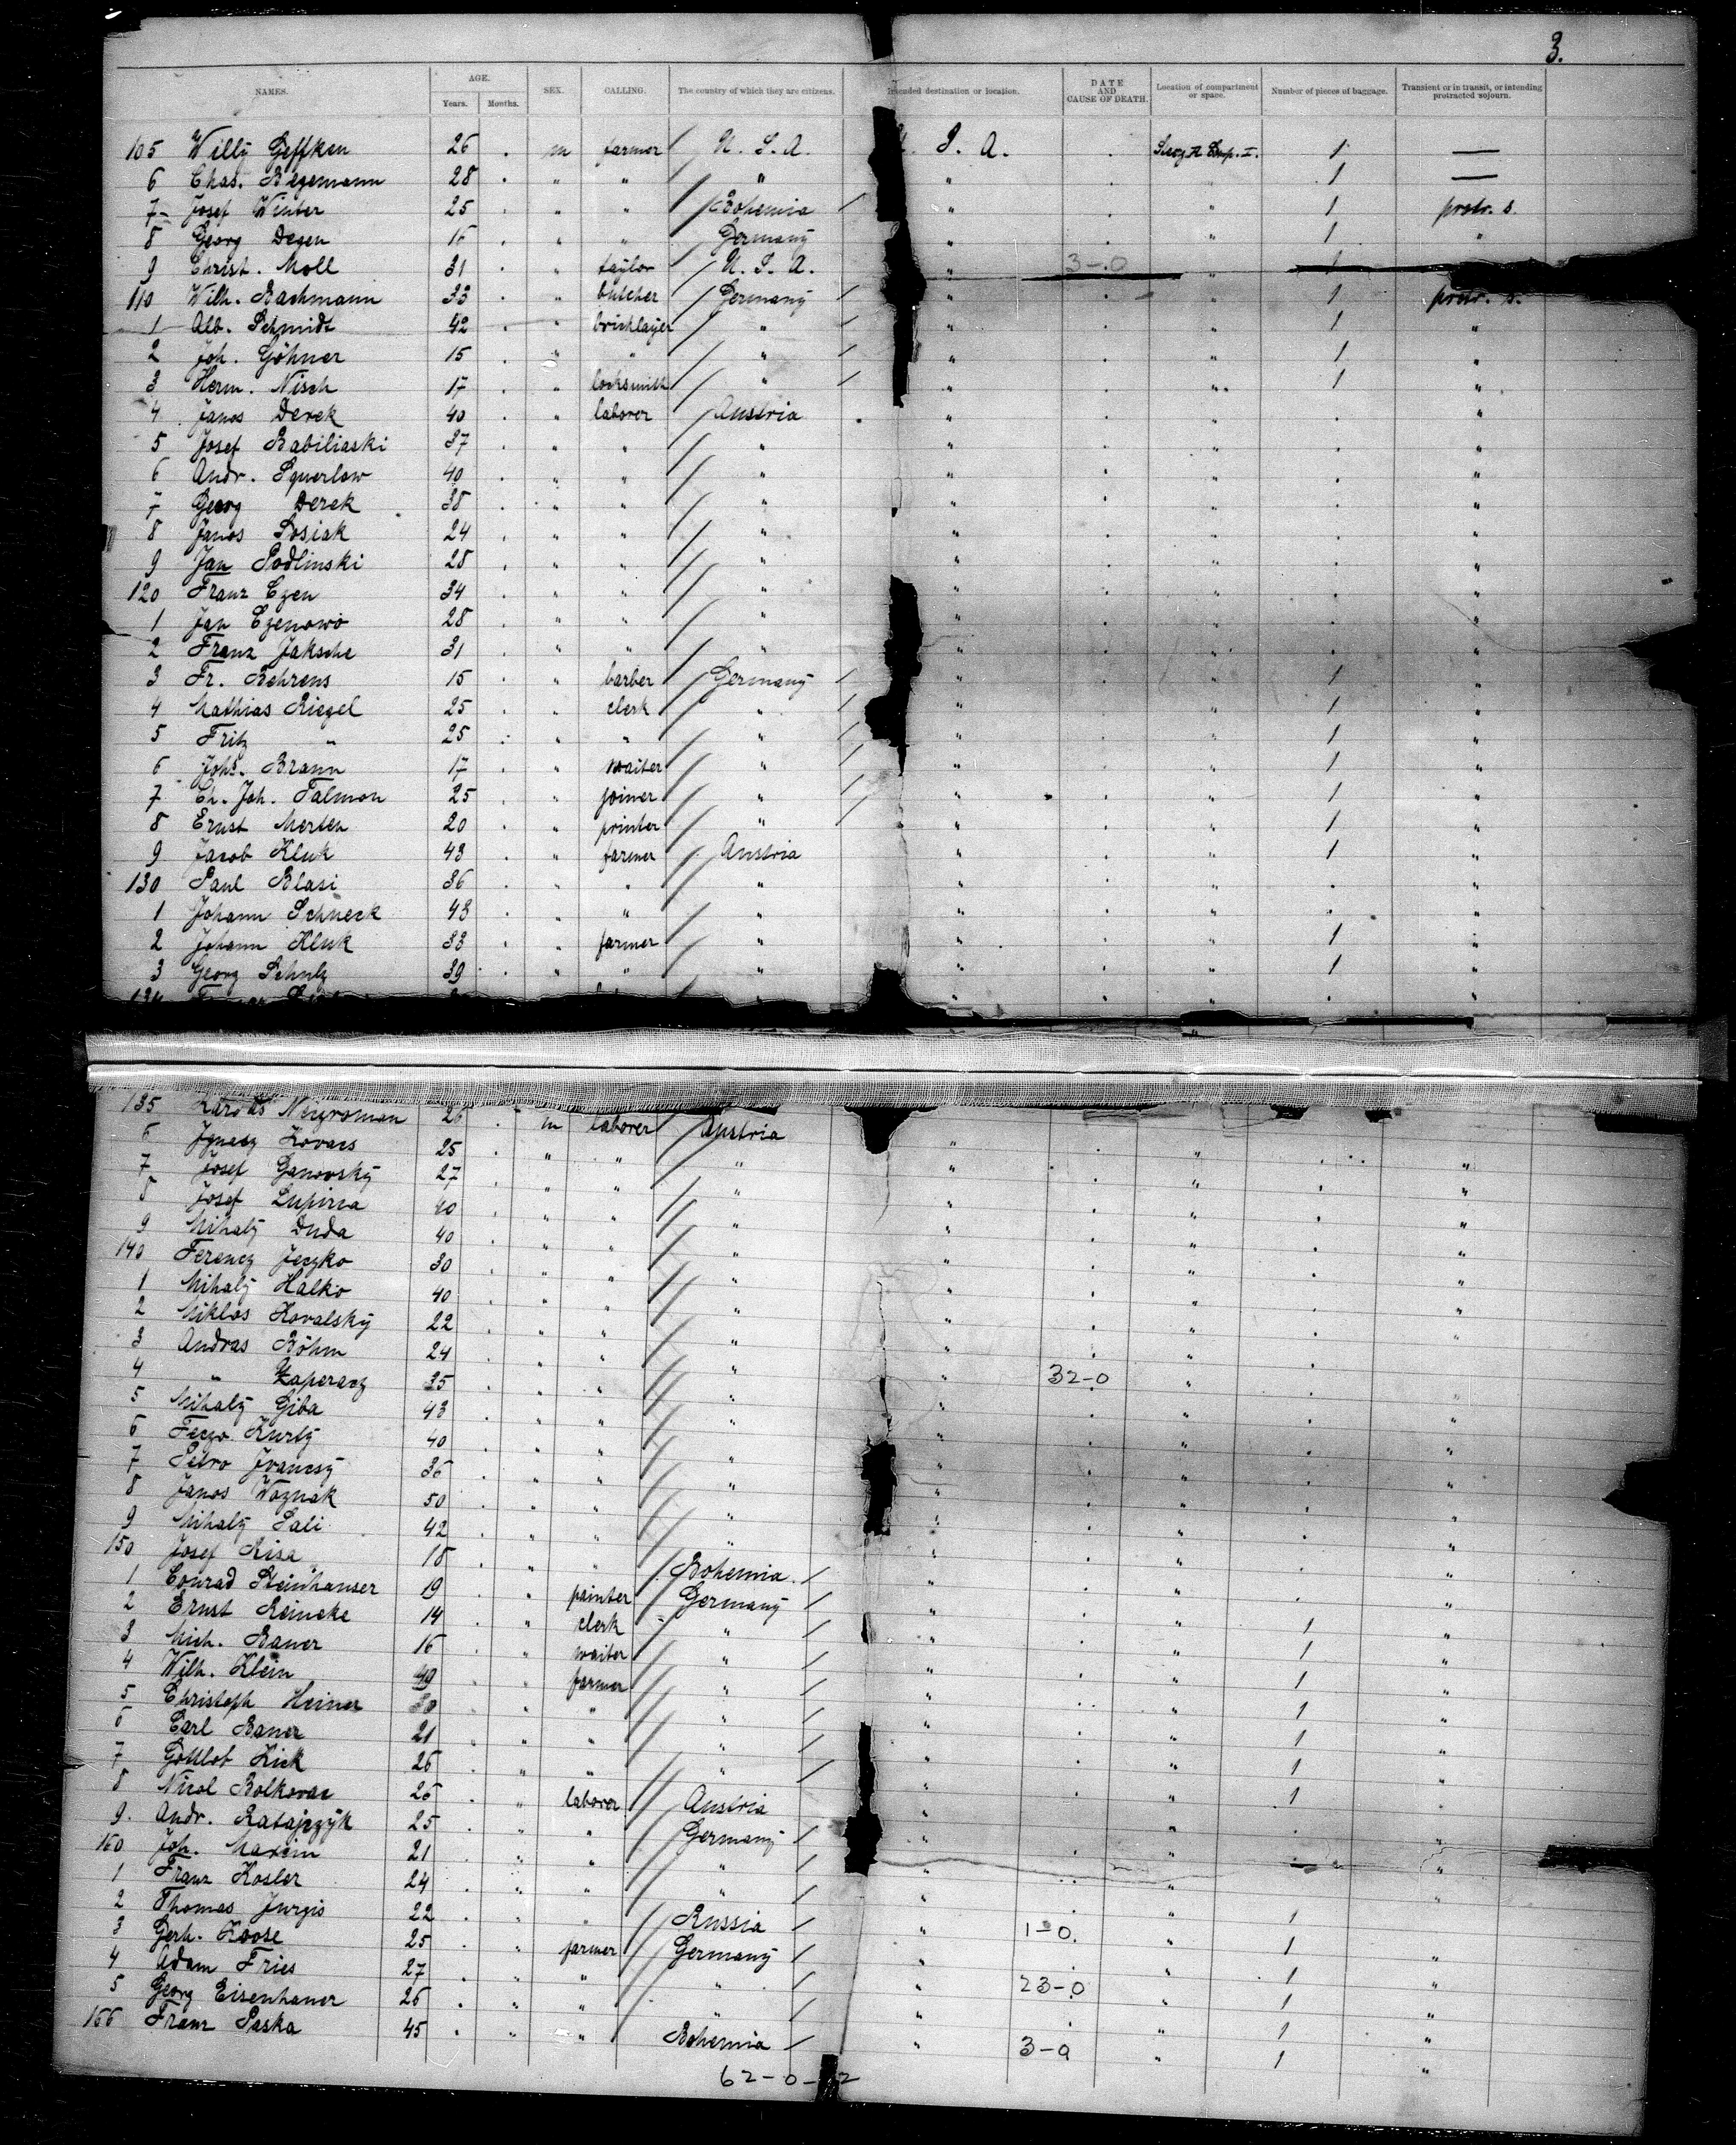 3.
NAMES. AGE. Years. Months. SEX. CALLING. The country of which they are citizens. Intended destination or location. DATE AND CAUSE OF DEATH. Location of compartment or space. Number of pieces of baggage. Transient or in transit, or intending protracted sojourn.
105 Willy Geffken 26 . m farmer / U. S. A. U. S. A. . 1 —
6 Chas. Begemann 28 . " " / " " . " 1 —
7 Josef Winter 25 . " " / Bohemia / " . " 1 protr. s.
8 Georg Degen 16 . " " / Germany " . " 1 "
9 Christ. Moll 31 . " taylor / U. S. A. " 3-0 " 1
110 Wilh. Bachmann 33 . " butcher / Germany / " . " 1 protr. s.
1 Alb. Schmidt 42 . " bricklayer / " / " . " 1 "
2 Joh. Göhner 15 . " " / " / " . " 1 "
3 Herm. Nisch 17 . " locksmith / " / " . " 1 "
4 Janos Derek 40 . " laborer / Austria " . " . "
5 Josef Babiliaski 37 . " " / " " . " . "
6 Andr. Squerlow 40 . " " / " " . " . "
7 Georg Derek 38 . " " / " " . " . "
8 Janos Sosiak 24 . " " / " " . " . "
9 Jan Podlinski 28 . " " / " " . " . "
120 Franz Czen 34 . " " / " " . " . "
1 Jan Czenowo 28 . " " / " " . " . "
2 Franz Jaksche 31 . " " / " " . " . "
3 Fr. Behrens 15 . " barber / Germany / " . " 1 "
4 Mathias Riegel 25 . " clerk / " / " . " 1 "
5 Fritz " 25 . " " / " / " . " 1 "
6 Johs. Braun 17 . " waiter / " / " . " 1 "
7 Ch. Joh. Talmon 25 . " joiner / " / " . " 1 "
8 Ernst Merten 20 . " printer / " / " . " 1 "
9 Jacob Kluk 43 . " farmer / Austria " . " 1 "
130 Paul Blasi 36 . " " / " " . " . "
1 Johann Schneck 43 . " " / " " . " . "
2 Johann Kluk 33 . " farmer / " " . " 1 "
3 Georg Schulz 39 . " " / " " . " 1 "
134
135 Karolus Neuroman 26 . m laborer / Austria
6 Ignacz Kovacs 25 . " " / " " . " . "
7 Josef Ganovsky 27 . " " / " " . " . "
8 Josef Lupina 40 . " " / " " . " . "
9 Mihaly Duda 40 . " " / " " . " . "
140 Ferencz Jeczko 30 . " " / " " . " . "
1 Mihaly Halko 40 . " " / " " . " . "
2 Miklos Kovalsky 22 . " " / " " . " . "
3 Andras Böhm 24 . " " / " " . " .
4 " Kaperacz 35 . " " / " " 32-0 " .
5 Mihaly Giba 43 . " " / " " . " . "
6 Feczo Kurty 40 . " " / " " . " . "
7 Petro Ivancsy 36 . " " / " " . " . "
8 Janos Woznak 50 . " " / " " . " . "
9 Mihaly Sali 42 . " " / " " . " . "
150 Josef Risa 18 . " " / Bohemia / " . " . "
1 Conrad Steinhauser 19 . " painter / Germany / " . " . "
2 Ernst Reineke 14 . " clerk " / " . " 1 "
3 Mich. Bauer 16 . " waiter / " / " . " 1 "
4 Wilh. Klein 49 . " farmer / " / " . " 1 "
5 Christoph Heiner 30 . " " / " / " . " 1 "
6 Carl Bauer 21 . " " / " / " . " 1 "
7 Gottlob Kick 26 . " " / " / " . " 1 "
8 Nicol Bolkovac 26 . " laborer / Austria " . " . "
9 Andr. Ratajczyk 25 . " " / Germany / " . " . "
160 Joh. Maxein 21 . " " / " / " . " . "
1 Franz Kosler 24 . " " / " / " . " 1
2 Thomas Jurgis 22 . " " / Russia / " 1-0 " 1 "
3 Gerh. Koose 25 . " farmer / Germany / " . " 1 "
4 Adam Fries 27 . " " / " / " 23-0 " 1 "
5 Georg Eisenhauer 26 . " " / " / " . " 1 "
166 Franz Paska 45 . " " Bohemia / " 3-0 " 1 "
62-0-